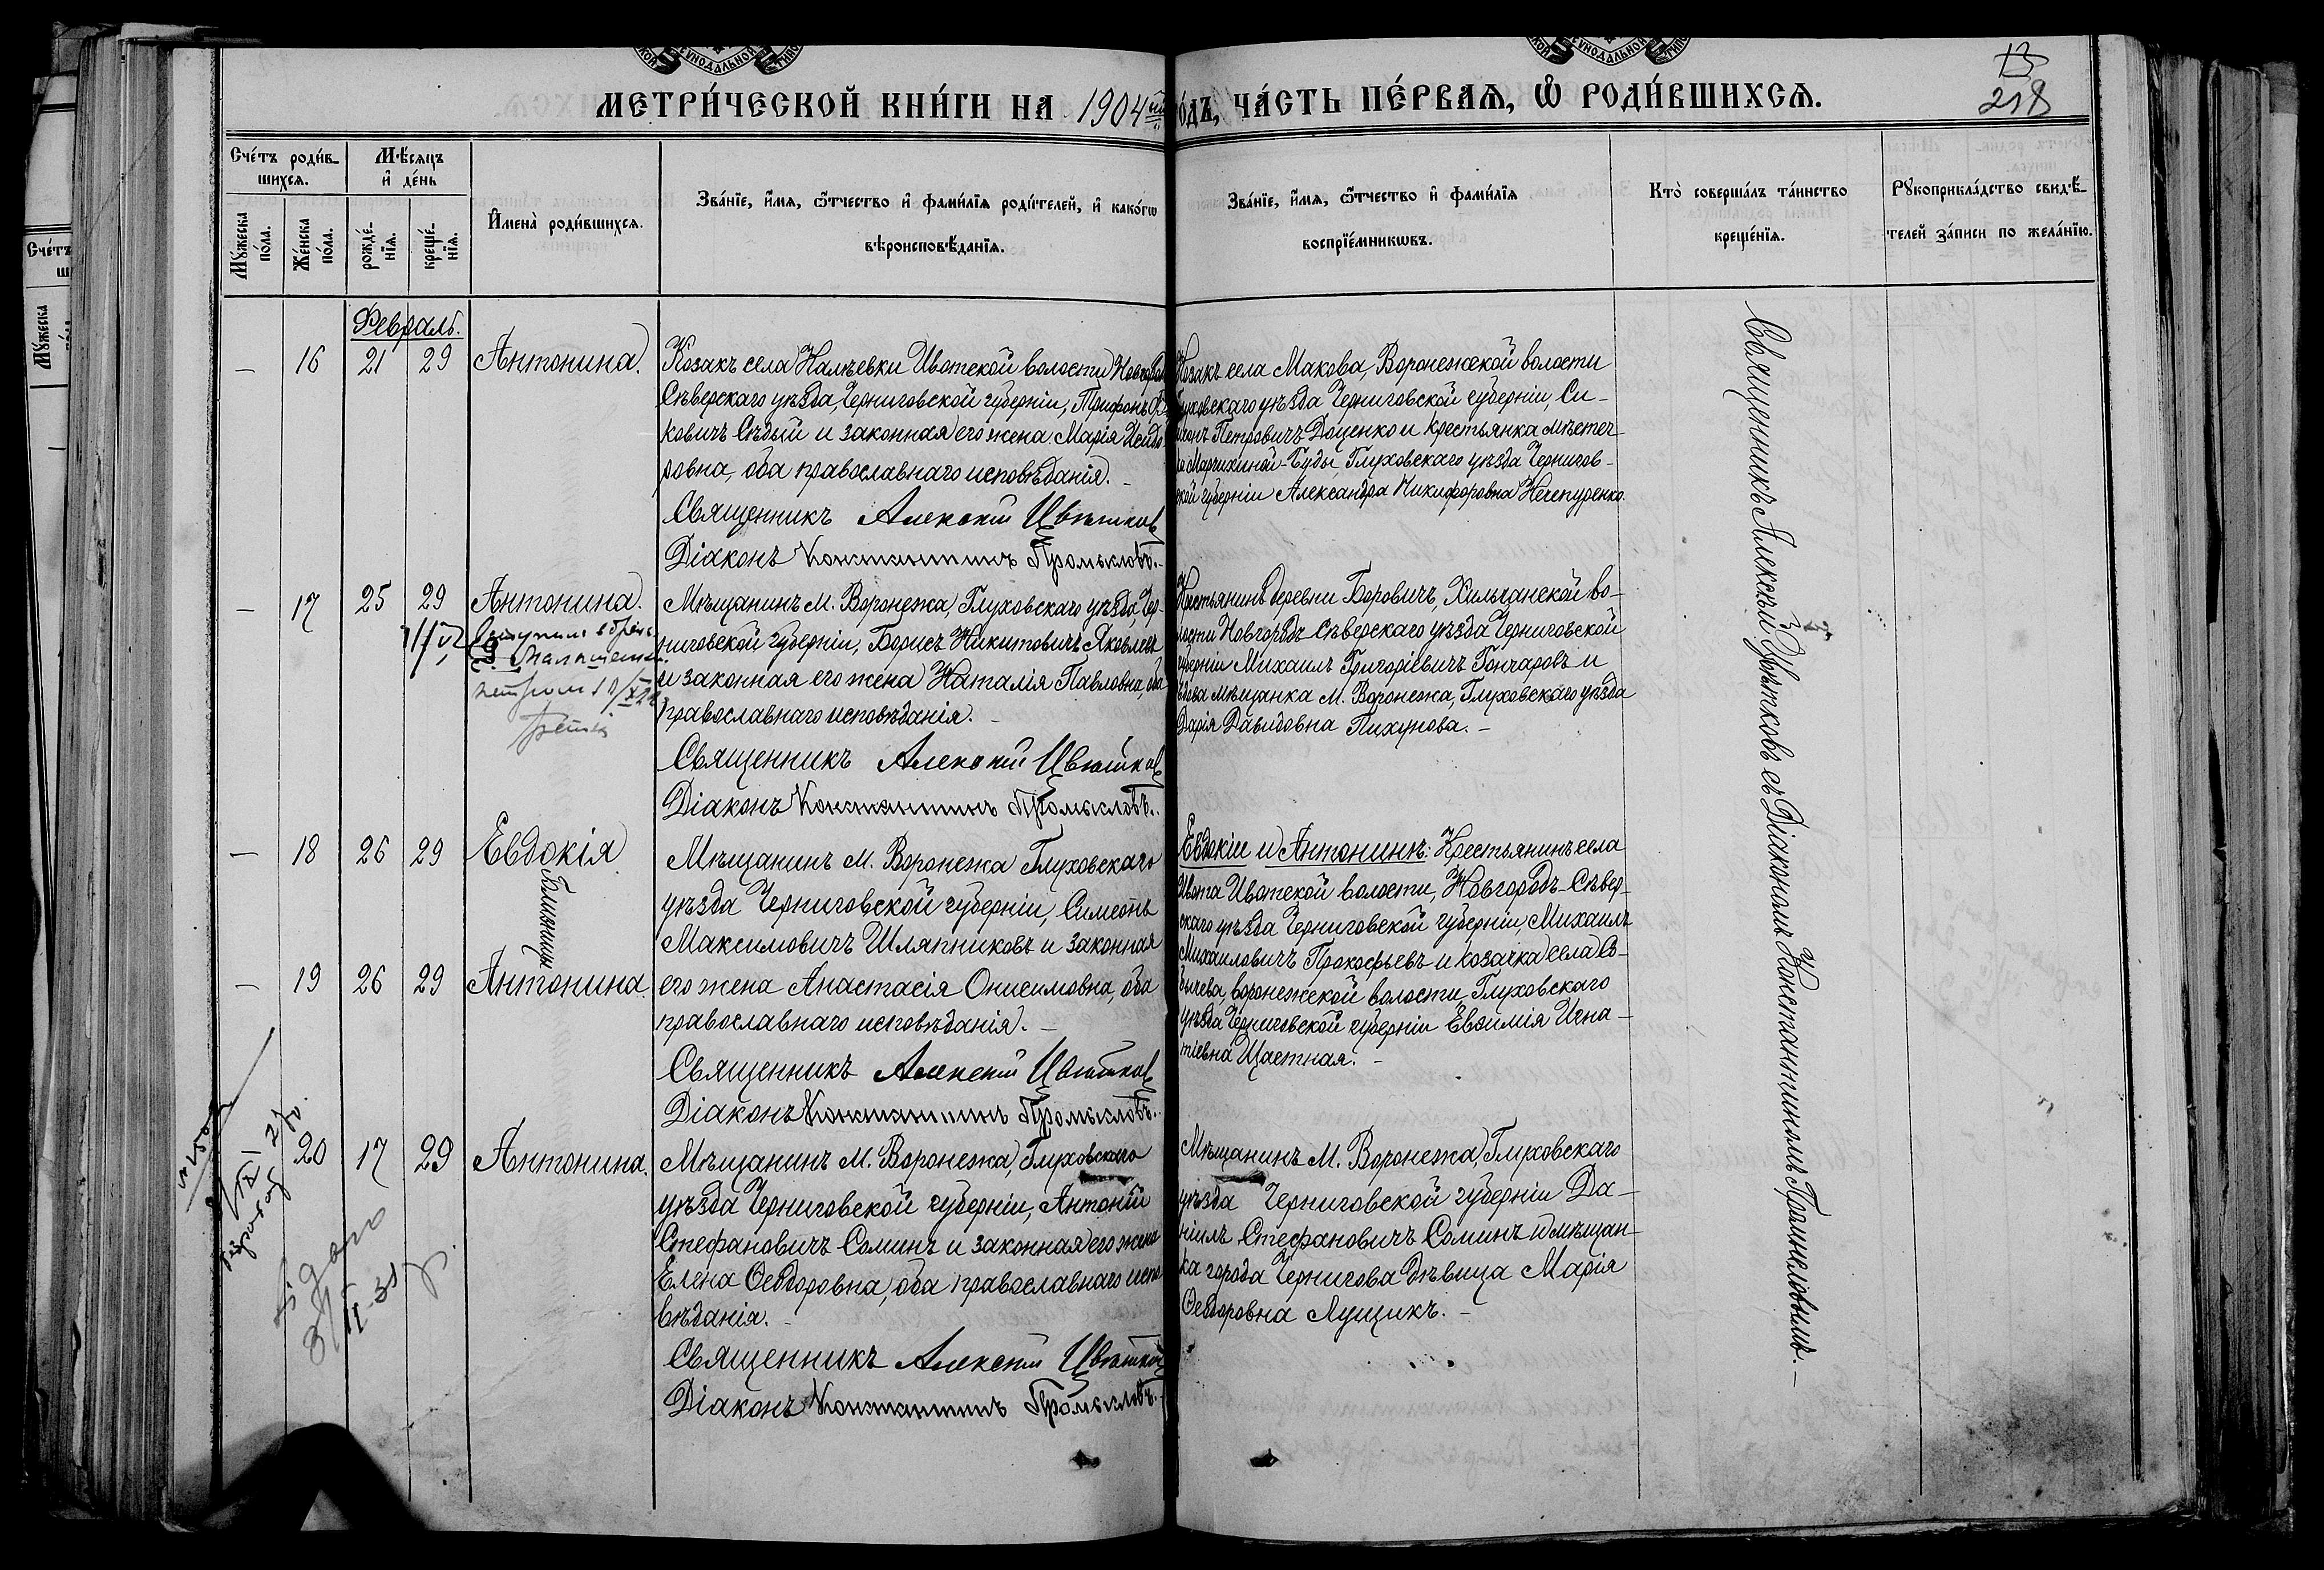 МЕТРИ́ЧЕСКОЙ КНИ́ГИ НА 1904 ый
О́ДЪ, ЧА́СТЬ ПЕ́РВАЯ, Ѡ РОДИ́ВШИХСЯ.
13
218
Сче́тъ роди́в-
шихся.
Мѣ́сяцъ
и де́нь
Мꙋ́жеска
по́ла.
Же́нска
по́ла.
рожде́-
нїя.
креще́-
нїя.
Имена̀ роди́вшихся.
Зва́нїе, и́мя, ѻ́тчество и фами́лїя роди́телей, и како́гѡ
вѣроисповѣ́данїя.
Зва́нїе, и́мя, ѻ́тчество и фами́лїя
воспрїе́мникѡвъ.
Кто̀ соверша́лъ та́инство
креще́нїя.
Рꙋкоприкла́дство свидѣ́-
телей за́писи по жела́нїю.
Февраль.
— 16 21 29 Антонина.
Козакъ села Налѣевки Ивотской волости Новгородъ
Сѣверскаго уѣзда, Черниговской губерніи, Трифонъ
ковичъ Сѣдый и законная его жена Марія Исидо-
ровна, оба православнаго исповѣданія. —
Священникъ Алексій Цвѣтковъ
Діаконъ Константинъ Громысловъ.
Козакъ села Макова, Воронежской волости
Глуховскаго уѣзда Черниговской губерніи, Си-
Петровичъ Доценко и крестьянка мѣстеч-
ка Марчихиной-Буды, Глуховскаго уѣзда Чернигов-
ской губерніи Александра Никифоровна Нечепуренко.
— 17 25 29 Антонина.
Мѣщанинъ м. Воронежа, Глуховскаго уѣзда, Чер-
ниговской губерніи, Борисъ Никитовичъ Яковлевъ
и законная его жена Наталія Павловна, оба
православнаго исповѣданія. —
Священникъ Алексій Цвѣтковъ
Діаконъ Константинъ Громысловъ.
Крестьянинъ деревни Боровичъ, Хильчанской во-
лости Новгородъ Сѣверскаго уѣзда Черниговской
губерніи Михаилъ Григоріевичъ Гончаровъ и
вдова мѣщанка м. Воронежа, Глуховскаго уѣзда
Дарія Давидовна Пихунова. —
— 18 26 29 Евдокія
Близницы
— 19 26 29 Антонина
Мѣщанинъ м. Воронежа Глуховскаго
уѣзда Черниговской губерніи, Симеонъ
Максимовичъ Шляпниковъ и законная
его жена Анастасія Онисимовна, оба
православнаго исповѣданія. —
Священникъ Алексій Цвѣтковъ
Діаконъ Константинъ Громысловъ.
Евдокіи и Антонинѣ: Крестьянинъ села
Ивота Ивотской волости, Новгородъ-Сѣвер-
скаго уѣзда Черниговской губерніи, Михаилъ
Михаиловичъ Прокофьевъ и козачка села Со-
бичева, Воронежской волости, Глуховскаго
уѣзда Черниговской губерніи Евѳимія Игна-
тіевна Щастная. —
20 17 29 Антонина.
Мѣщанинъ м. Воронежа, Глуховскаго
уѣзда Черниговской губерніи, Антоній
Стефановичъ Соминъ и законная его жена
Елена Ѳеодоровна, оба православнаго испо-
вѣданія. —
Священникъ Алексій Цвѣтковъ
Діаконъ Константинъ Громысловъ.
Мѣщанинъ м. Воронежа, Глуховскаго
уѣзда Черниговской губерніи Да-
ніилъ Стефановичъ Соминъ и мѣщан-
ка города Чернигова дѣвица Марія
Ѳеодоровна Лущикъ. —
Священникъ Алексѣй Цвѣтковъ съ Діакономъ Константиномъ Громысловымъ. —